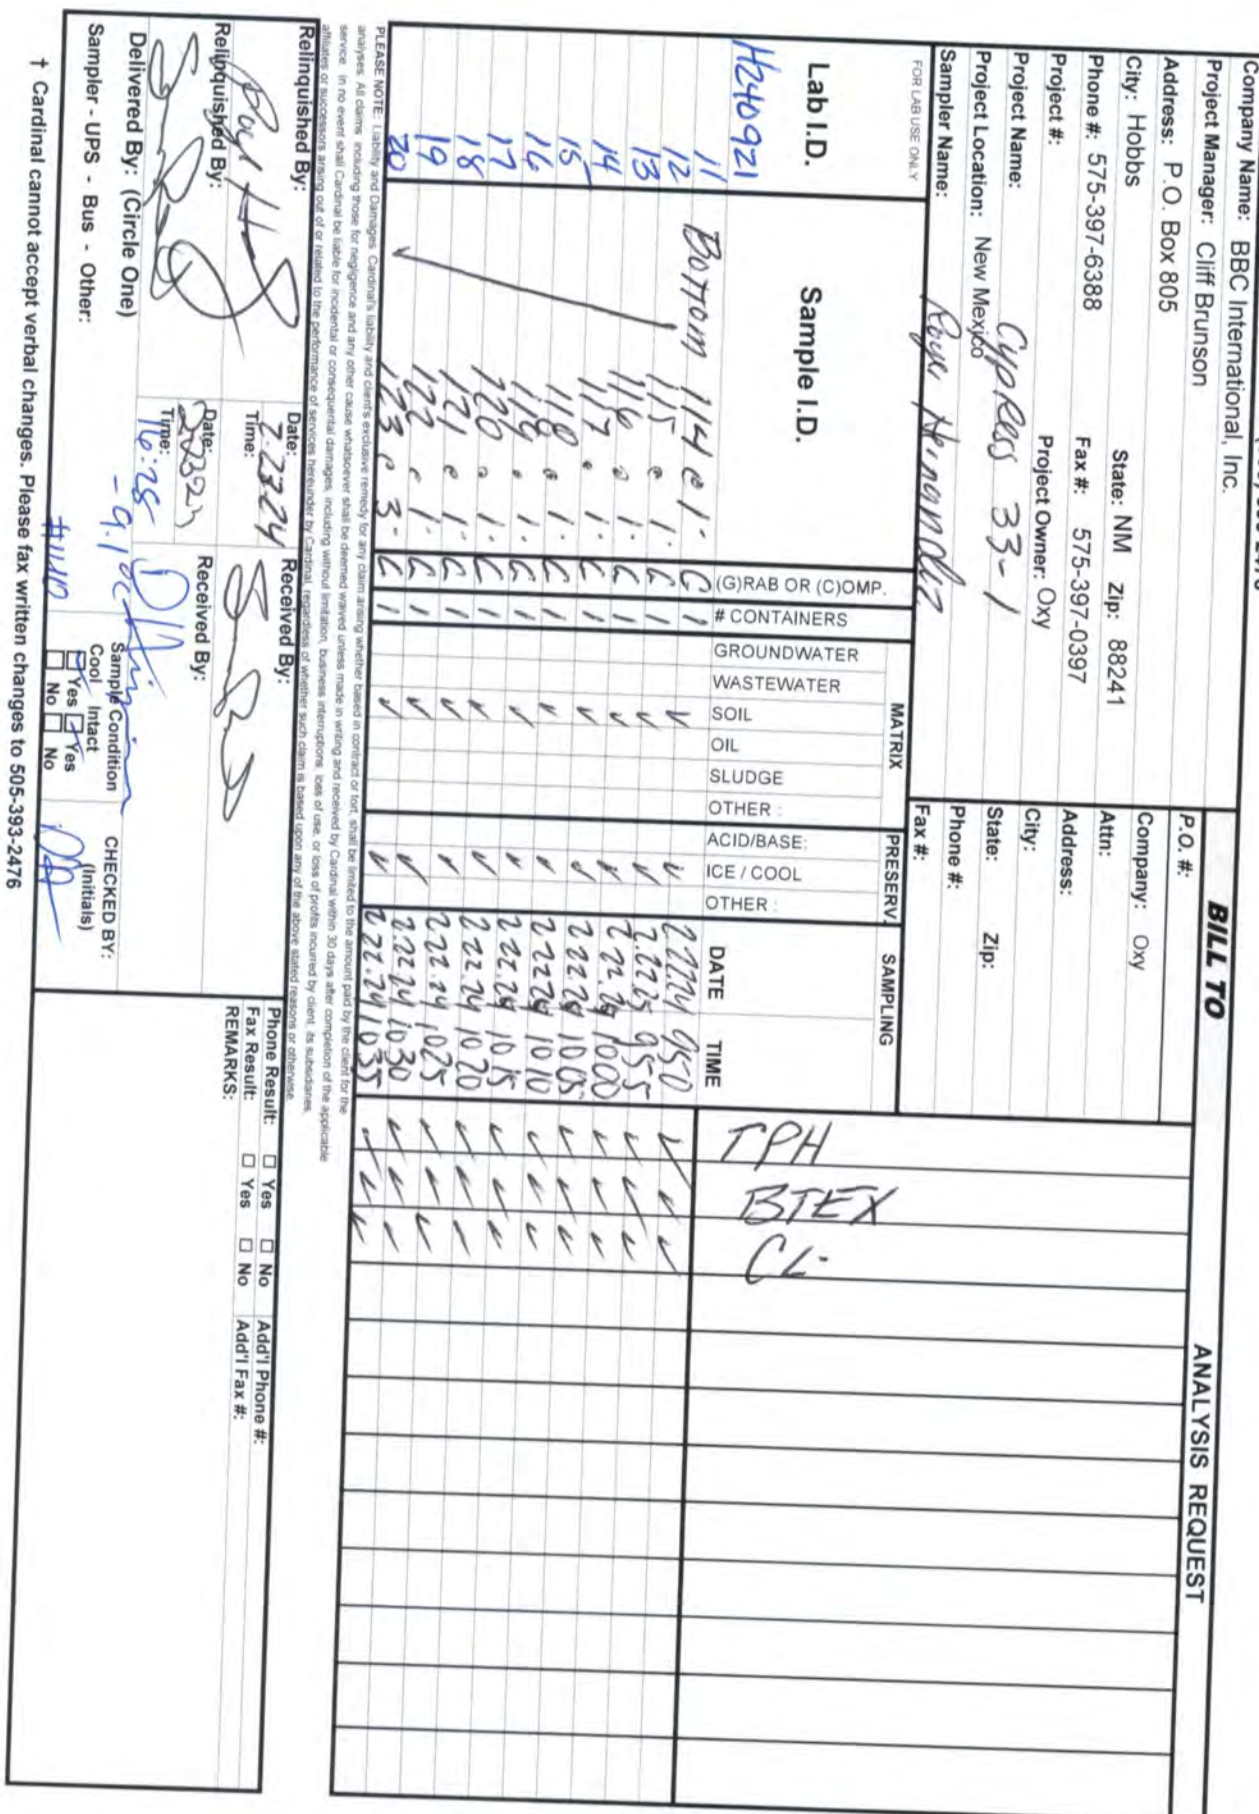 Company Name: BBC International, Inc.
Project Manager: Cliff Brunson
Address: P.O. Box 805
City: Hobbs State: NM Zip: 88241
Phone #: 575-397-6388 Fax #: 575-397-0397
Project #: Project Owner: Oxy
Project Name: Cypress 33-1
Project Location: New Mexico
Sampler Name: Roger Hernandez
BILL TO
P.O. #:
Company: Oxy
Attn:
Address:
City:
State: Zip:
Phone #:
Fax #:
ANALYSIS REQUEST
TPH
BTEX
CL-
FOR LAB USE ONLY
Lab I.D.
H240921
Sample I.D.
(G)RAB OR (C)OMP.
# CONTAINERS
MATRIX
GROUNDWATER
WASTEWATER
SOIL
OIL
SLUDGE
OTHER :
PRESERV.
ACID/BASE:
ICE / COOL
OTHER :
SAMPLING
DATE TIME
11 Bottom 114 @ 1' G 1 ✓ ✓ 2.22.24 950 ✓ ✓ ✓
12 115 @ 1' G 1 ✓ ✓ 2.22.25 955 ✓ ✓ ✓
13 116 @ 1' G 1 ✓ ✓ 2.22.24 1000 ✓ ✓ ✓
14 117 @ 1' G 1 ✓ ✓ 2.22.24 1005 ✓ ✓ ✓
15 118 @ 1' G 1 ✓ ✓ 2.22.24 1010 ✓ ✓ ✓
16 @ 1' G 1 ✓ ✓ 2.22.24 1015 ✓ ✓ ✓
17 120 @ 1' G 1 ✓ ✓ 2.22.24 1020 ✓ ✓ ✓
18 121 @ 1' G 1 ✓ ✓ 2.22.24 1025 ✓ ✓ ✓
19 122 @ 1' G 1 ✓ ✓ 2.22.24 1030 ✓ ✓ ✓
20 123 @ 3' G 1 ✓ ✓ 2.22.24 1035 ✓ ✓ ✓
PLEASE NOTE: Liability and Damages. Cardinal's liability and client's exclusive remedy for any claim arising whether based in contract or tort, shall be limited to the amount paid by the client for the
analyses. All claims including those for negligence and any other cause whatsoever shall be deemed waived unless made in writing and received by Cardinal within 30 days after completion of the applicable
service. In no event shall Cardinal be liable for incidental or consequental damages, including without limitation, business interruptions, loss of use, or loss of profits incurred by client, its subsidiaries,
affiliates or successors arising out of or related to the performance of services hereunder by Cardinal, regardless of whether such claim is based upon any of the above stated reasons or otherwise.
Relinquished By: Date: 2-23-24 Received By:
Time:
Relinquished By: Date: Received By:
Time: 16:28
Delivered By: (Circle One) -9.1°c Sample Condition CHECKED BY:
Cool Intact (Initials)
Sampler - UPS - Bus - Other: #140 Yes Yes
No No
Phone Result: Yes No Add'l Phone #:
Fax Result: Yes No Add'l Fax #:
REMARKS:
† Cardinal cannot accept verbal changes. Please fax written changes to 505-393-2476